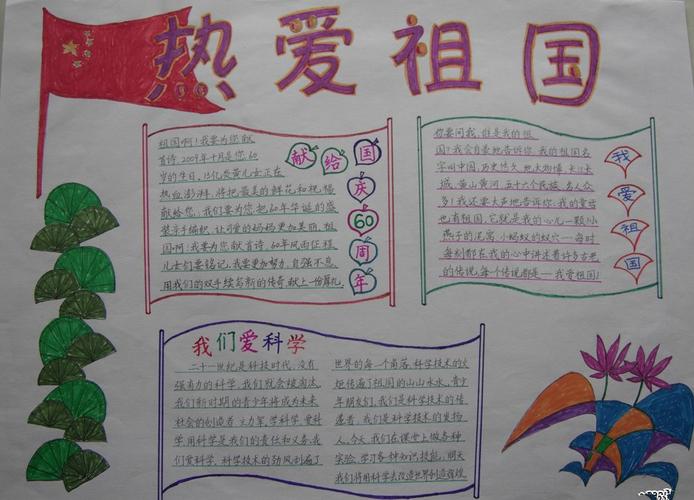 热爱祖国
祖国啊!我要为您献
首诗.2009年十月是您60
岁的生日,13亿炎黄儿女正在
热血澎湃,将把最美的鲜花和祝福
献给您.我们要为您把60年华诞的盛
装亲手编织,让可爱的妈妈更加美丽.祖
国啊!我要为您献首诗.60年风雨征程
儿女们要铭记.我要更加努力,自强不息
用我们的双手续写新的传奇.献上一份贺礼
献给国庆60周年
你要问我,谁是我的祖
国?我会自豪地告诉你,我的祖国名
字叫中国,历史悠久,地大物博,长江长
城,黄山黄河,五十六个民族,名人众
多!我还要大声地告诉你:我的童话
也有祖国,它就是我的心儿一颗,小
燕子的泥窝,小蚂蚁的蚁穴——每时
每刻都在我的心中讲述着许多古老
的传说,每个传说都是——我爱祖国!
我爱祖国
我们爱科学
二十一世纪是科技时代,没有
强有力的科学,我们就会被淘汰.
我们新时期的青少年将成为未来
社会的创造者,主力军.学科学,爱科
学,用科学是我们的责任和义务.我
们爱科学,科学技术的劲风刮遍了
世界的每一个角落.科学技术的火
炬传遍了祖国的山山水水.青少
年朋友们,我们是科学技术的传
播者,我们是科学技术的发扬
人.今天,我们在课堂上做各种
实验,学习各种知识技能,明天
我们将用科学去改造世界创造辉煌